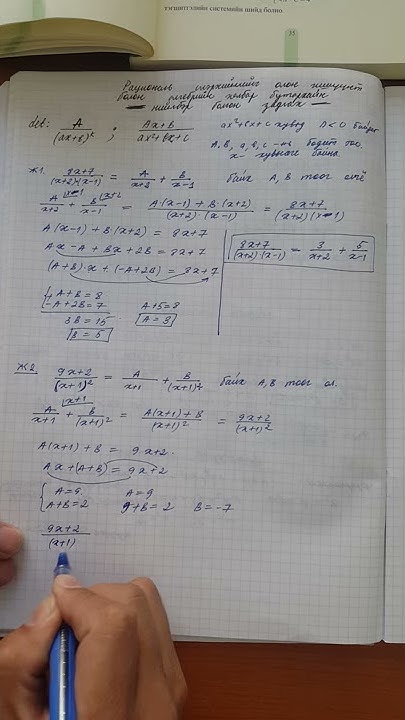 тэгшитгэлийн системийн шийд болно.
35
Рационал илэрхийллийг олон гишүүнт
болон алгебрийн хялбар бутархайн
нийлбэр болгон задлах
def: A/(ax+b)^k ; Ax+B/(ax²+bx+c) ax²+bx+c хувьд D<0 байдаг
A, B, a, b, c
x- хувьсагч байна.
Ж1. 8x+7/((x+2)(x-1)) = A/(x+2) + B/(x-1) байх A, B тоог олъё
A/(x+2) + B/(x-1) = (A·(x-1) + B·(x+2))/((x+2)·(x-1)) = 8x+7/((x+2)(x-1))
A(x-1) + B(x+2) = 8x+7
Ax - A + Bx + 2B = 8x+7
(A+B)·x + (-A+2B) = 8x+7
8x+7/((x+2)(x-1)) = 3/(x+2) + 5/(x-1)
A+B=8
-A+2B=7
3B=15
B=5
A+5=8
A=3
Ж2. 9x+2/(x+1)² = A/(x+1) + B/(x+1)² байх A, B тоог ол.
A/(x+1) + B/(x+1)² = (A(x+1)+B)/(x+1)² = 9x+2/(x+1)²
A(x+1) + B = 9x+2.
A x + (A+B) = 9x+2
A=9 A=9
A+B=2 9+B=2 B=-7
9x+2/(x+1)